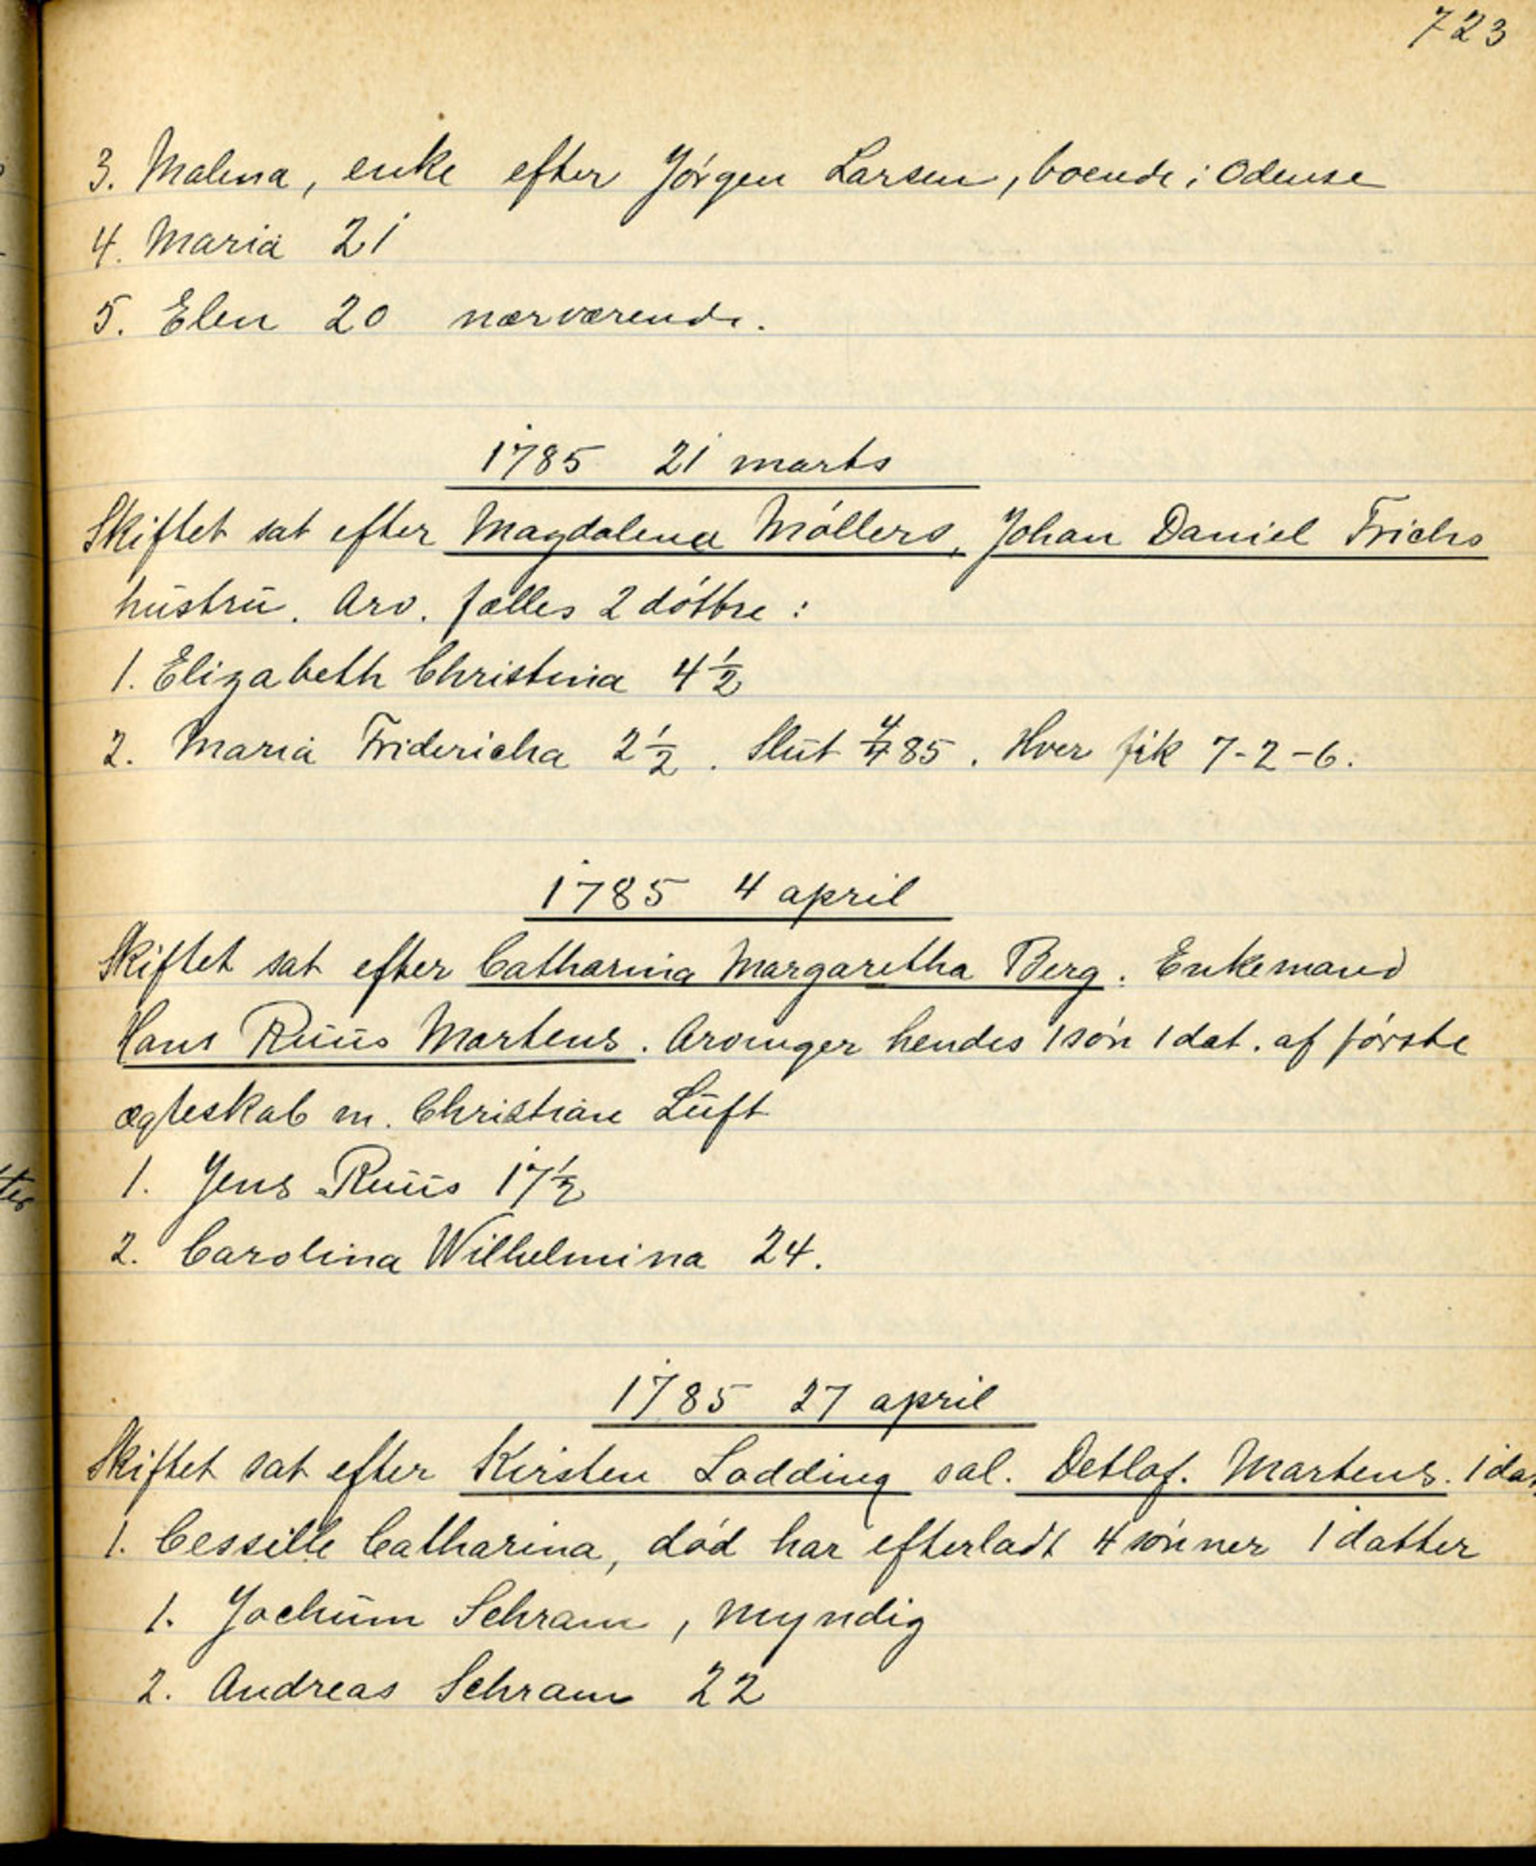 723
3. Malena, enke efter Jörgen Larsen, boende i Odense
4. Maria 21
5. Elen 20 nærværende.
1785 21 marts
Skiftet sat efter Magdalena Möllers, Johan Daniel Frichs
hustru. Arv. fælles 2 döttre :
1. Elizabeth Christina 4½
2. Maria Fridericha 2½. Slut 4/4 85. Hver fik 7-2-6.
1785 4 april
Skiftet sat efter Catharina Margaretha Berg. Enkemand
Hans Ruus Martens. Arvinger hendes 1 sön 1 dat. af förste
ægteskab m. Christian Luft
1. Jens Ruus 17½
2. Carolina Wilhelmina 24.
1785 27 april
Skiftet sat efter Kirsten Lodding sal. Detlof. Martens. 1 dat.
1. Cessille Catharina, död har efterladt 4 sönner 1 datter
1. Jochum Schram, myndig
2. Andreas Schram 22